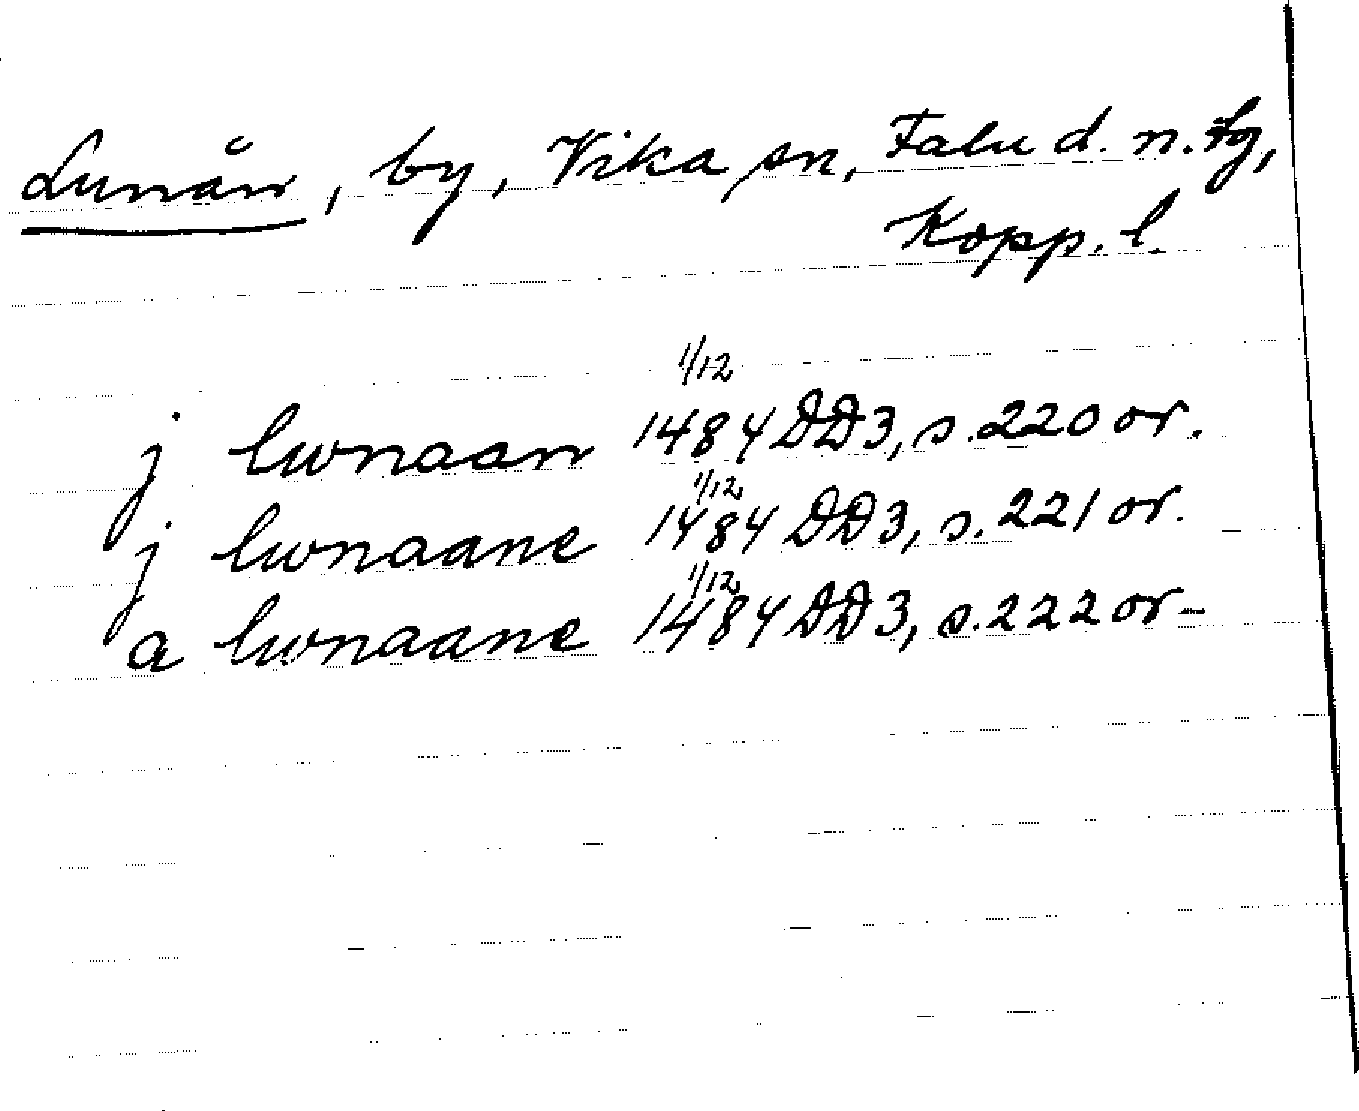 Lunån, by, Vika sn, Falu d. n. fg,
Kopp. l.
1/12
j lwnaan 1484 DD3, s. 220 or.
1/12
j lwnaane 1484 DD3, s. 221 or.
1/12
a lwnaane 1484 DD3, s. 222 or-